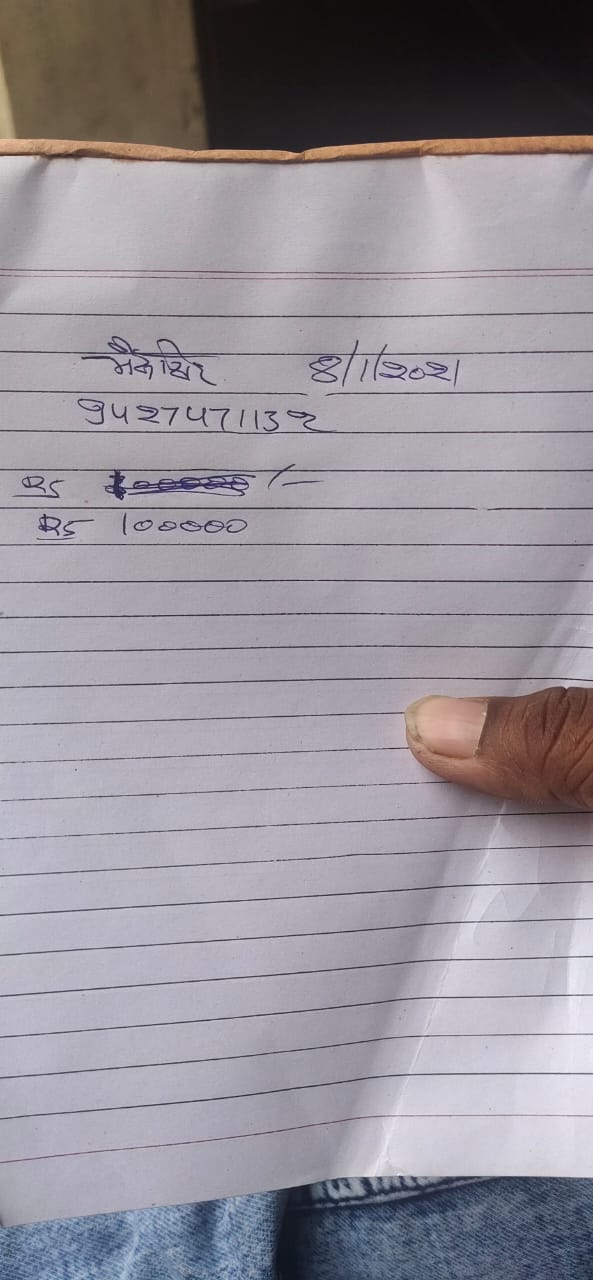 8/1/2021
9427471132
Rs /-
Rs 100000